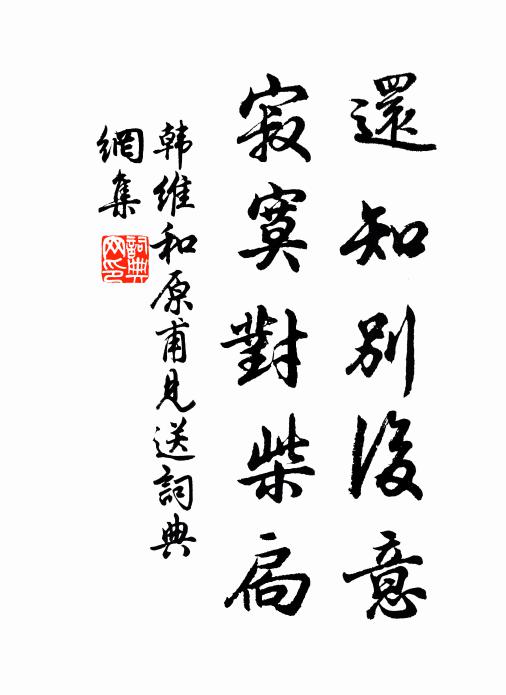 還知別後意
寂寞對柴扃
韩維和原甫見送詞典
網集
詞典
网印